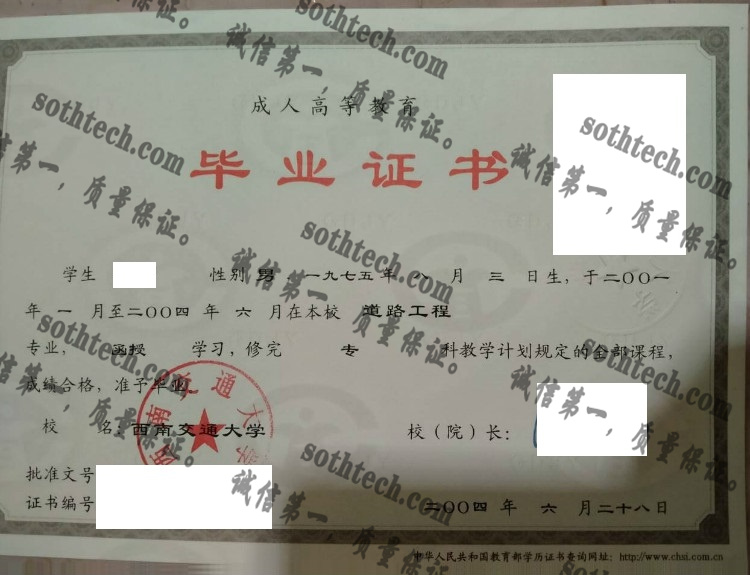 成人高等教育
毕业证书
学生 性别 男 ,一九七五年 八 月 三 日生,于二〇〇一
年 一 月至二〇〇四 年 六 月在本校 道路工程
专业, 函授 学习,修完 专 科教学计划规定的全部课程,
成绩合格,准予毕业
校 名:西南交通大学
校(院)长:
批准文号
证书编号
二〇〇四 年 六 月二十八日
中华人民共和国教育部学历证书查询网址:http://www.chsi.com.cn
西南交通大学
sothtech.com
诚信第一,质量保证。
sothtech.com
诚信第一,质量保证。
sothtech.com
诚信第一,质量保证。
sothtech.com
诚信第一,质量保证。
sothtech.com
诚信第一,质量保证。
sothtech.com
诚信第一,质量保证。
sothtech.com
诚信第一,质量保证。